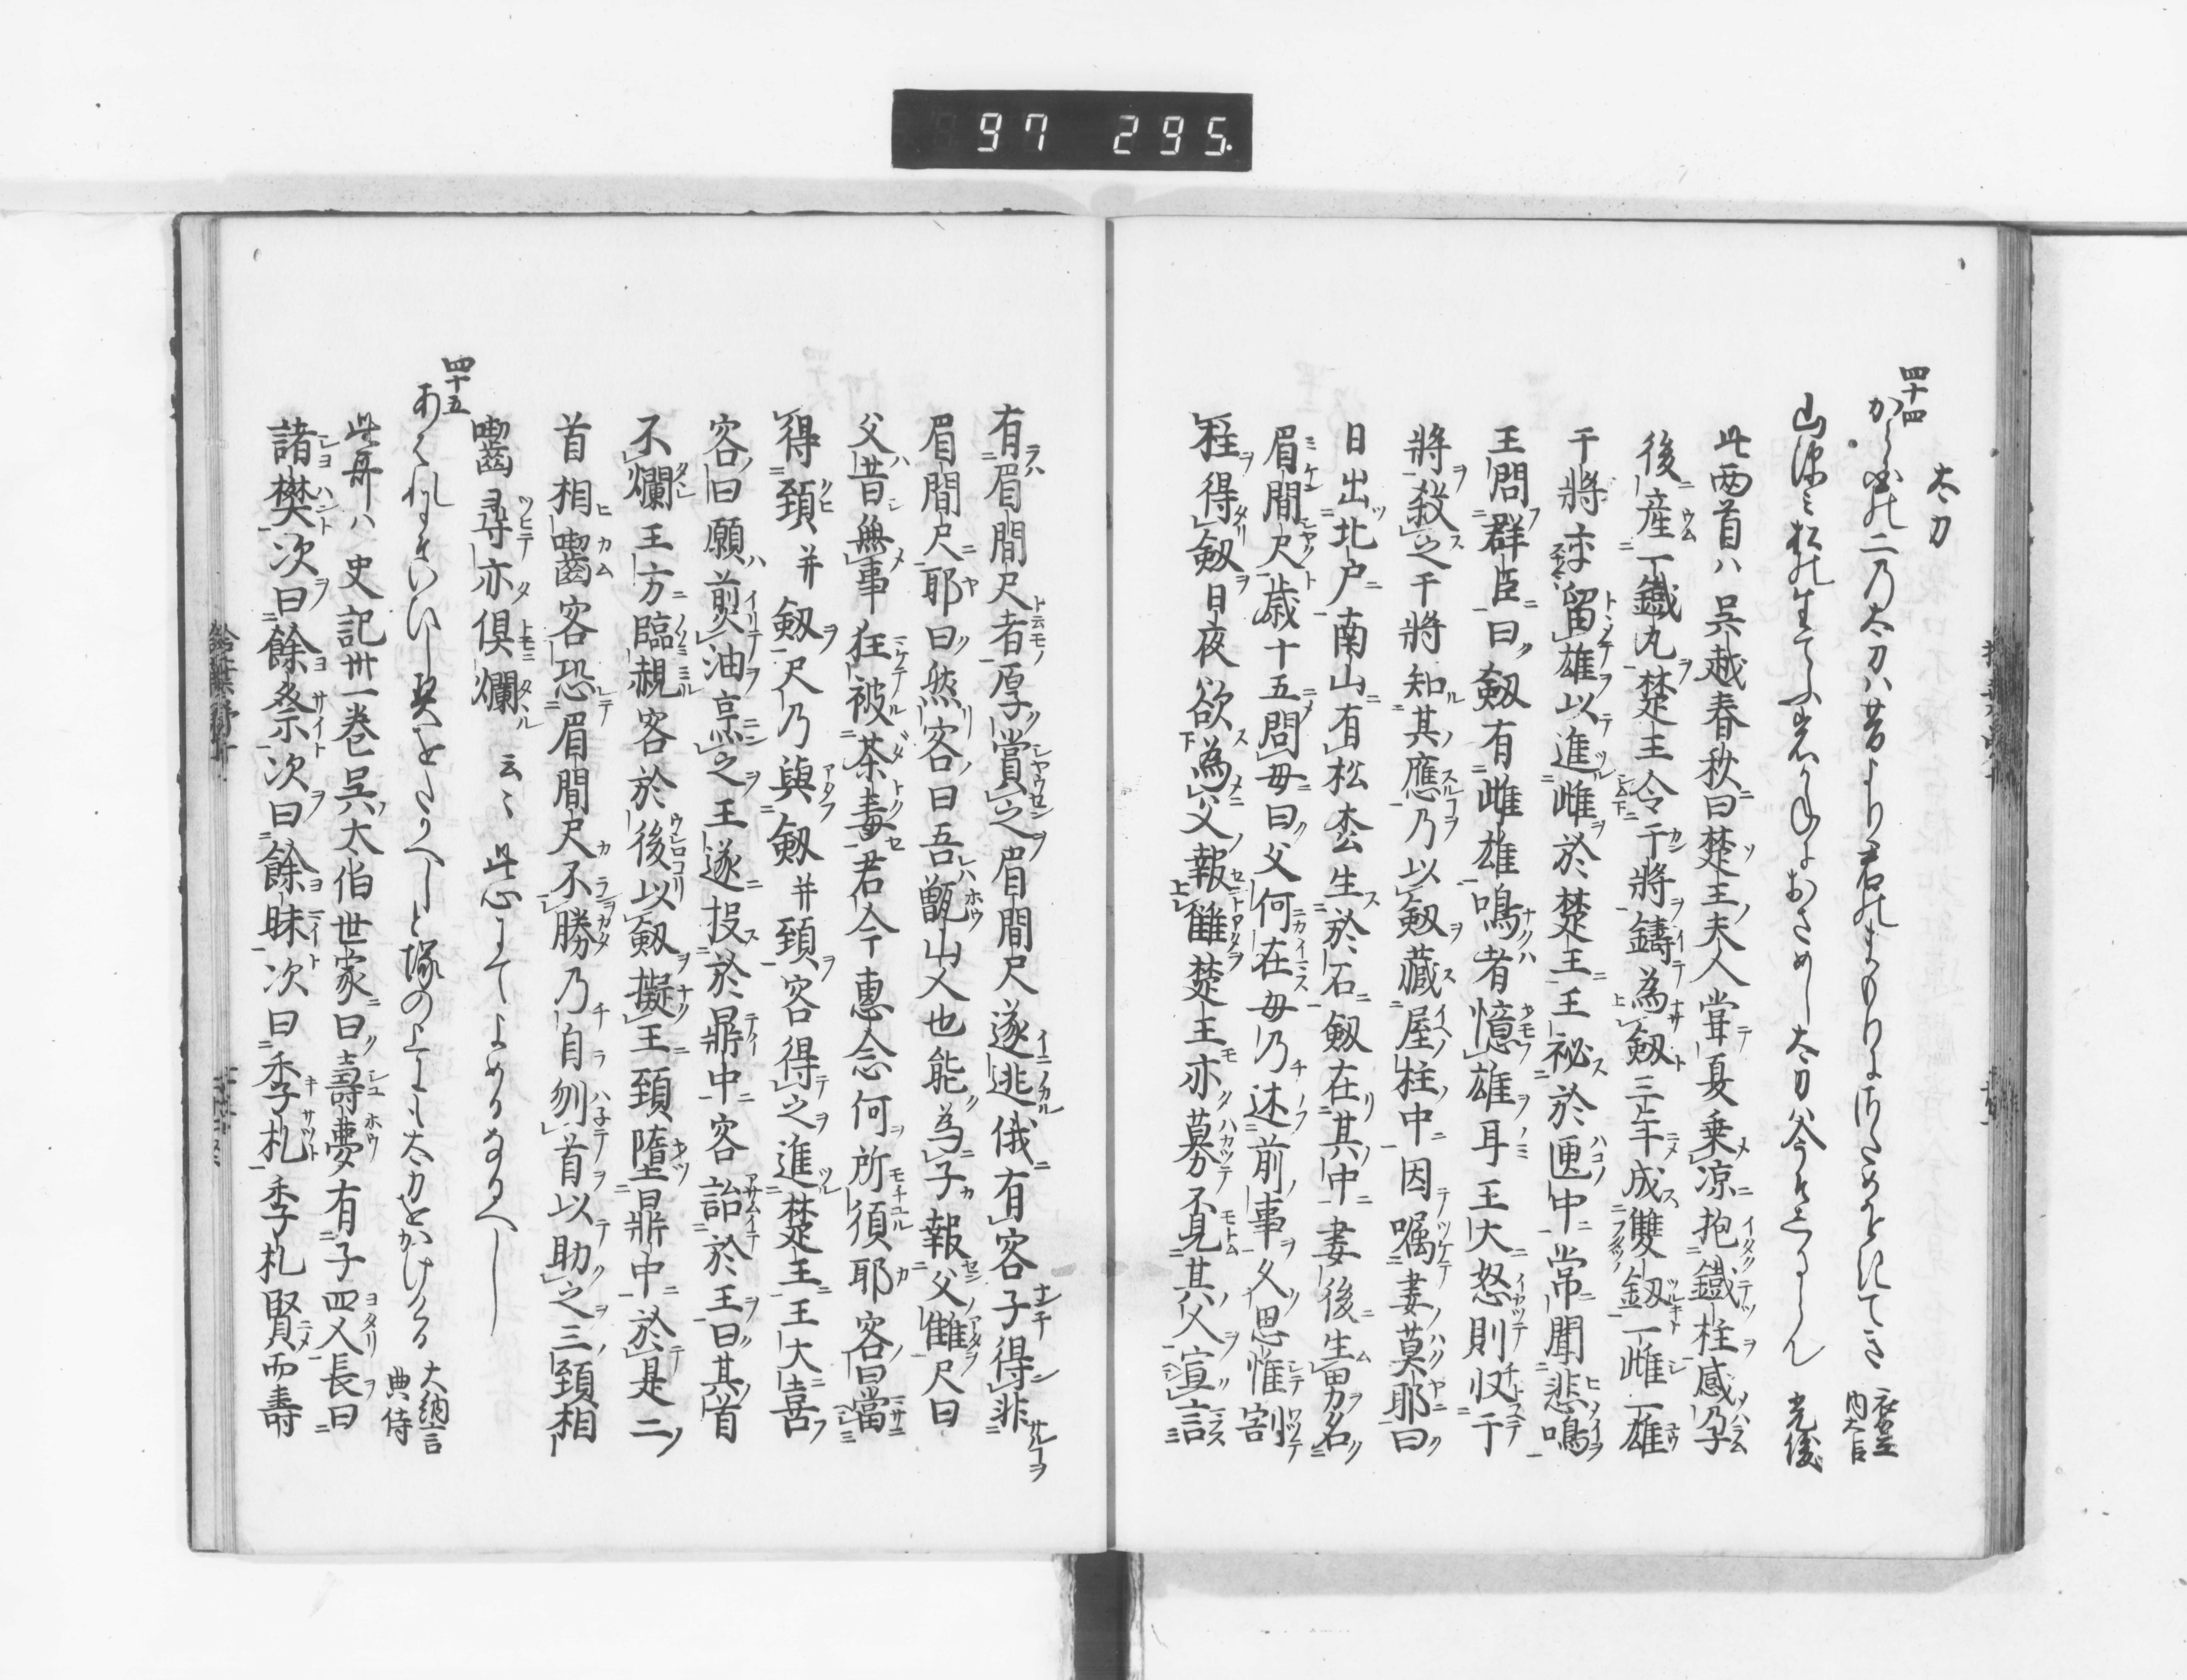 97 295
太刀
四十四
から國の二乃太刀ハ昔より君のまもりにそためをきてき
衣笠
内大臣
山深ミ松の生てふ岩かねにおさめし太刀ハ今そとるらん 光俊
此両首ハ呉越春秋曰楚王夫人甞夏乗凉抱鐵柱感孕
後産一鐵丸楚王令干將鑄為釼三年成雙釼一雌一雄
干將密留雄以進雌於楚王王祕於匣中常聞悲鳴
王問群臣曰釼有雌雄鳴者憶雄耳王大怒則収干
將殺之干將知其應乃以釼藏屋柱中因嘱妻莫耶曰
日出北戸南山有松松生於石釼在其中妻後生男名
眉間尺歳十五問母曰父何在母乃述前事久思惟割
柱得釼日夜欲為父報讎楚王亦募不見其父宣言
有眉間尺者厚賞之眉間尺遂逃俄有客子得非
眉間尺耶曰然客曰吾甑山人也能為子報父讎尺曰
父昔無事狂被荼毒君今惠念何所須耶客曰當
得頸并釼尺乃與釼并頸客得之進楚王王大喜
客曰願煎油烹之王遂投於鼎中客詒於王曰其首
不爛王方臨覩客於後以釼擬王頸墮鼎中於是二
首相囓客恐眉間尺不勝乃自刎首以助之三頸相
囓尋亦俱爛 云々 此心にてよめるなるへし
四十五
あはれにそいひし契をたかへしと塚の上にも太刀をかけける
大納言
典侍
此哥ハ史記卅一巻呉太伯世家曰壽夢有子四人長曰
諸樊次曰餘祭次曰餘昧次曰季札季札賢而壽